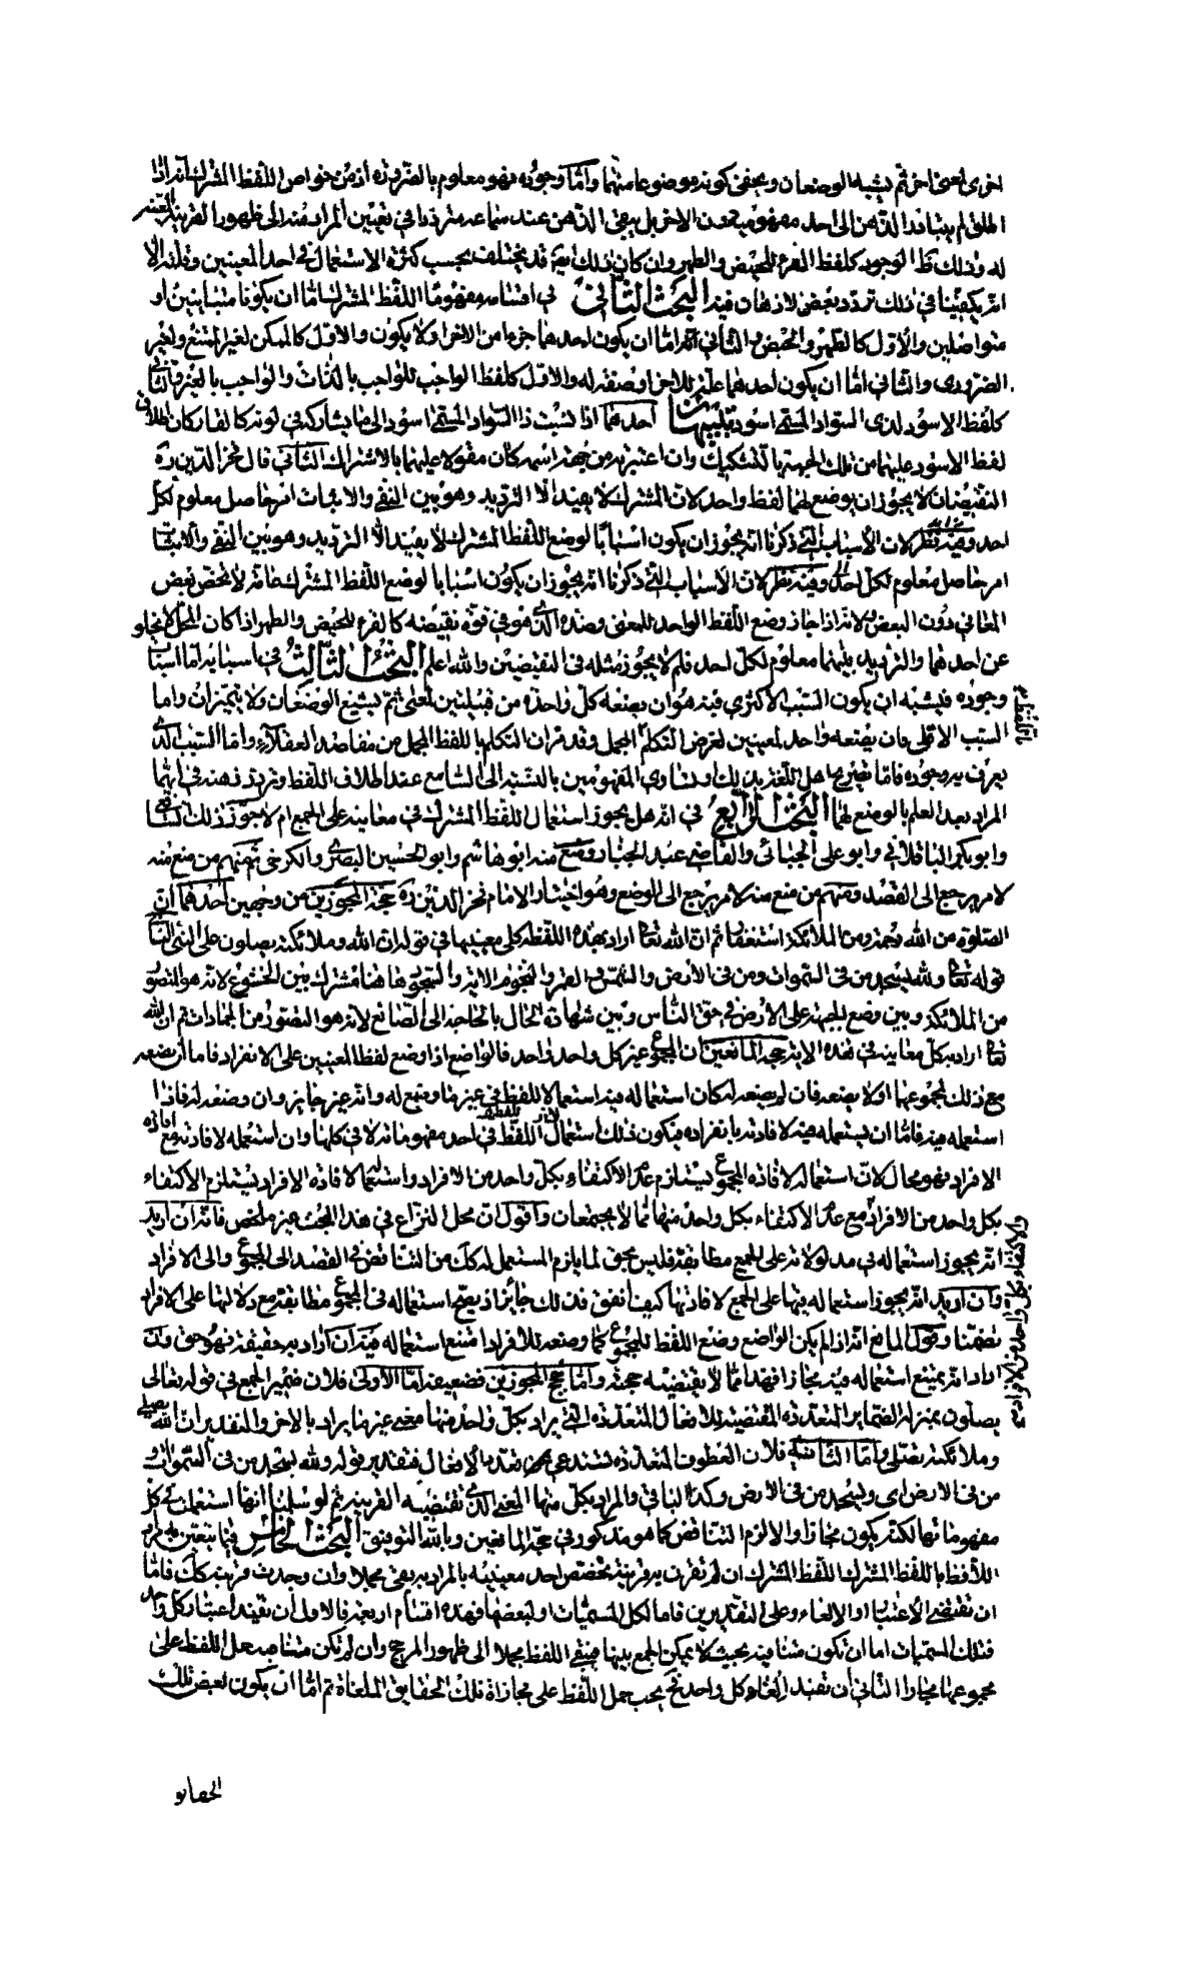 اخرى لمعنى اخر ثم يشيع الوضعان ويخفى كونه موضوعا منهما واما وجوده فهو معلوم بالضرورة اذ من خواص اللفظ المشترك انه اذا
اطلق لم يتبادر الذهن الى احد مفهوميه دون الاخر بل يبقى الذهن عند سماعه مترددا في تعيين المراد منه الى ظهور القرينة المعينة
له وذلك ظ الوجود كلفظ القرء للحيض والطهر وان كان ذلك قد يختلف بحسب كثرة الاستعمال في احد المعنيين وقلته الا
انه يكفينا في ذلك تردد بعض الاذهان فيه البحث الثاني في اقسامه مفهوما اللفظ المشترك اما ان يكونا متباينين او
متواصلين والاول كالطهر والحيض والثاني اما ان يكون احدهما جزءا من الاخر او لا يكون والاول كالممكن لغير الممتنع ولغير
الضرورى والثاني اما ان يكون احدهما علة للاخر او صفة له والاول كلفظ الواجب للواجب بالذات والواجب بالغير والثاني
كلفظ الاسود لذى السواد المسمى اسود تنبيهان احدهما اذا نسبت ذا السواد المسمى اسود الى ما يشاركه في لونه كالقار كان اطلاق
لفظ الاسود عليهما من تلك الجهة بالتشكيك وان اعتبرته من جهة اسمه كان مقولا عليهما بالاشتراك الثاني قال فخر الدين ره
النقيضان لا يجوز ان يوضع لهما لفظ واحد لان المشترك لا يفيد الا الترديد وهو بين النفي والاثبات امر حاصل معلوم لكل
احد وفيه نظر لان الاسباب التي ذكرنا انه يجوز ان يكون اسبابا لوضع اللفظ المشترك لا يفيد الا الترديد وهو بين النفي والاثبات
امر حاصل معلوم لكل احد وفيه نظر لان الاسباب التي ذكرنا انه يجوز ان يكون اسبابا لوضع اللفظ المشترك عامة لا تخص بعض
المعاني دون البعض ولانه اذا جاز وضع اللفظ الواحد للمعنى وضده الذي هو في قوة نقيضه كالقرء للحيض والطهر اذا كان المحل لا يخلو
عن احدهما والترديد بينهما معلوم لكل احد فلم لا يجوز مثله في النقيضين والله اعلم البحث الثالث في اسبابه اما اسباب
وجوده فيشبه ان يكون السبب الاكثرى فيه هو ان يضعه كل واحدة من قبيلتين لمعنى ثم يشيع الوضعان ولا يتميزان واما
السبب الاقلى فان يضعه واحد لمعنيين لغرض التكلم المجمل وقد مر ان التكلم باللفظ المجمل من مقاصد العقلاء واما السبب الذي
يعرف به وجوده فاما تصريح اهل اللغة بذلك او تساوي المفهومين بالنسبة الى السامع عند اطلاق اللفظ وتردد ذهنه في ايهما
المراد بعد العلم بالوضع لهما البحث الرابع في انه هل يجوز استعمال اللفظ المشترك في معانيه على الجمع ام لا جوز ذلك الشافعي
وابوبكر الباقلاني وابو على الجبائى والقاضي عبد الجبار ومنع منه ابو هاشم وابو الحسين البصرى والكرخي ثم منهم من منع منه
لامر يرجع الى القصد ومنهم من منع منه لامر يرجع الى الوضع وهو اختيار الامام فخر الدين ره حجة المجوزين من وجهين احدهما ان
الصلوة من الله رحمة ومن الملائكة استغفار ثم ان الله تعالى اراد بهذه اللفظة كلى معنييها في قوله ان الله وملائكته يصلون على النبي الثاني
قوله تعالى ولله يسجد من في السموات ومن في الارض والشمس والقمر والنجوم الاية والسجود هاهنا مشترك بين الخشوع لانه هو المتصور
من الملائكة وبين وضع الجبهة على الارض في حق الناس وبين شهادة الحال بالحاجة الى الصانع لانه هو المتصور من الجمادات ثم ان الله
تعالى اراد به كل معانيه في هذه الاية حجة المانعين ان المجموع غير كل واحد واحد فالواضع اذا وضع لفظا لمعنيين على الانفراد فاما ان يضعه
مع ذلك لمجموعهما او لا يضعه فان لم يضعه له كان استعماله فيه استعمالا للفظ في غير ما وضع له وانه غير جايز وان وضعه له فاذا
استعمله فيه فاما ان يستعمله فيه لافادته بانفراده فيكون ذلك استعمال اللفظ في احد مفهوماته لا في كلها وان استعمله لافادته مع افادة
الافراد فهو محال لان استعماله لافادة المجموع يستلزم عدم الاكتفاء بكل واحد من الافراد واستعماله لافادة الافراد يستلزم الاكتفاء
بكل واحد من الافراد مع عدم الاكتفاء بكل واحد منها مما لا يجتمعان واقول ان محل النزاع في هذا البحث غير ملخص فانه ان اريد
انه يجوز استعماله في مدلولاته على الجمع مطابقة فليس بحق لما يلزم المستعمل له كك من التناقض في القصد الى المجموع والى الافراد
وان اريد انه يجوز استعماله فيها على الجمع لافادتها كيف اتفق فذلك جائز اذ يصح استعماله في المجموع مطابقة مع دلالتها على الافراد
تضمنا وقول المانع انه اذا لم يكن الواضع وضع اللفظ للمجموع كما وضعه للافراد امتنع استعماله فيه ان اراد به حقيقة فهو حق وان
اراد انه يمتنع استعماله فيه مجازا فهذا مما لا يقتضيه حجته واما حجج المجوزين فضعيفة اما الاولى فلان ضمير الجمع في قوله تعالى
يصلون بمنزلة الضماير المتعددة المقتضية للافعال المتعددة التي يراد بكل واحد منها معنى غير ما يراد بالاخر والتقدير ان الله يصلى
وملائكته تصلى واما الثانية فلان العطوف المتعددة تستدعي تعدد الافعال فتقدير قوله ولله يسجد من في السموات و
من في الارض اى ويسجد من في الارض وكذا الباقي والمراد بكل منها المعنى الذى تقتضيه القرينة ثم لو سلمنا انها استعملت في كل
مفهوماتها لكنه يكون مجازا والا لزم التناقض كما هو مذكور في حجة المانعين وبالله التوفيق البحث الخامس فيما يتعين به مراد
اللافظ باللفظ المشترك اللفظ المشترك ان لم تقترن به قرينة تخصص احد معنييه بالمراد به بقى مجملا وان وجدت قرينة كك فاما
ان تقتضى الاعتبار او الالغاء وعلى التقديرين فاما لكل المسميات او لبعضها فهذه اقسام اربعة فالاول ان تفيد اعتبار كل واحد
فتلك المسميات اما ان تكون متنافية بحيث لا يمكن الجمع بينها فيبقى اللفظ مجملا الى ظهور المرجح وان لم تكن متنافية حمل اللفظ على
مجموعها مجازا الثاني ان تفيد الغاء كل واحد فح يجب حمل اللفظ على مجازاة تلك الحقايق الملغاة ثم اما ان يكون لبعض تلك
الحقايق